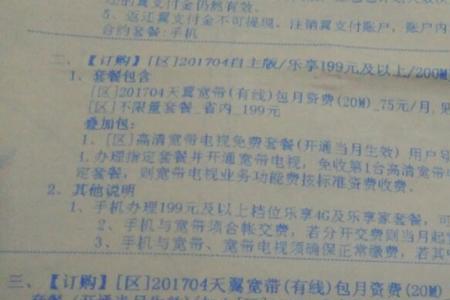 还的翼支付金仍然有效。
5、返还翼支付金不可提现。注销翼支付账户，账户内
合约套餐:手机
二、【订购】[区]201704自主版/乐享199元及以上/200M
1、套餐包含
[区]201704天翼宽带(有线)包月资费(20M)_75元/月,
[区]不限量套餐_省内_199元
叠加包:
1、[区]高清宽带电视免费套餐(开通当月生效) 用户
1.办理指定套餐并开通宽带电视，免收第1台高清宽带
定套餐，则宽带电视业务功能费按标准资费收费。
2、其他说明
1、手机办理199元及以上档位乐享4G及乐享家套餐，可
2、手机与宽带须合帐交费，若分开交费则当月起
3、手机与宽带、宽带电视须确保正常缴费，若其
三、【订购】[区]201704天翼宽带(有线)包月资费(20M)